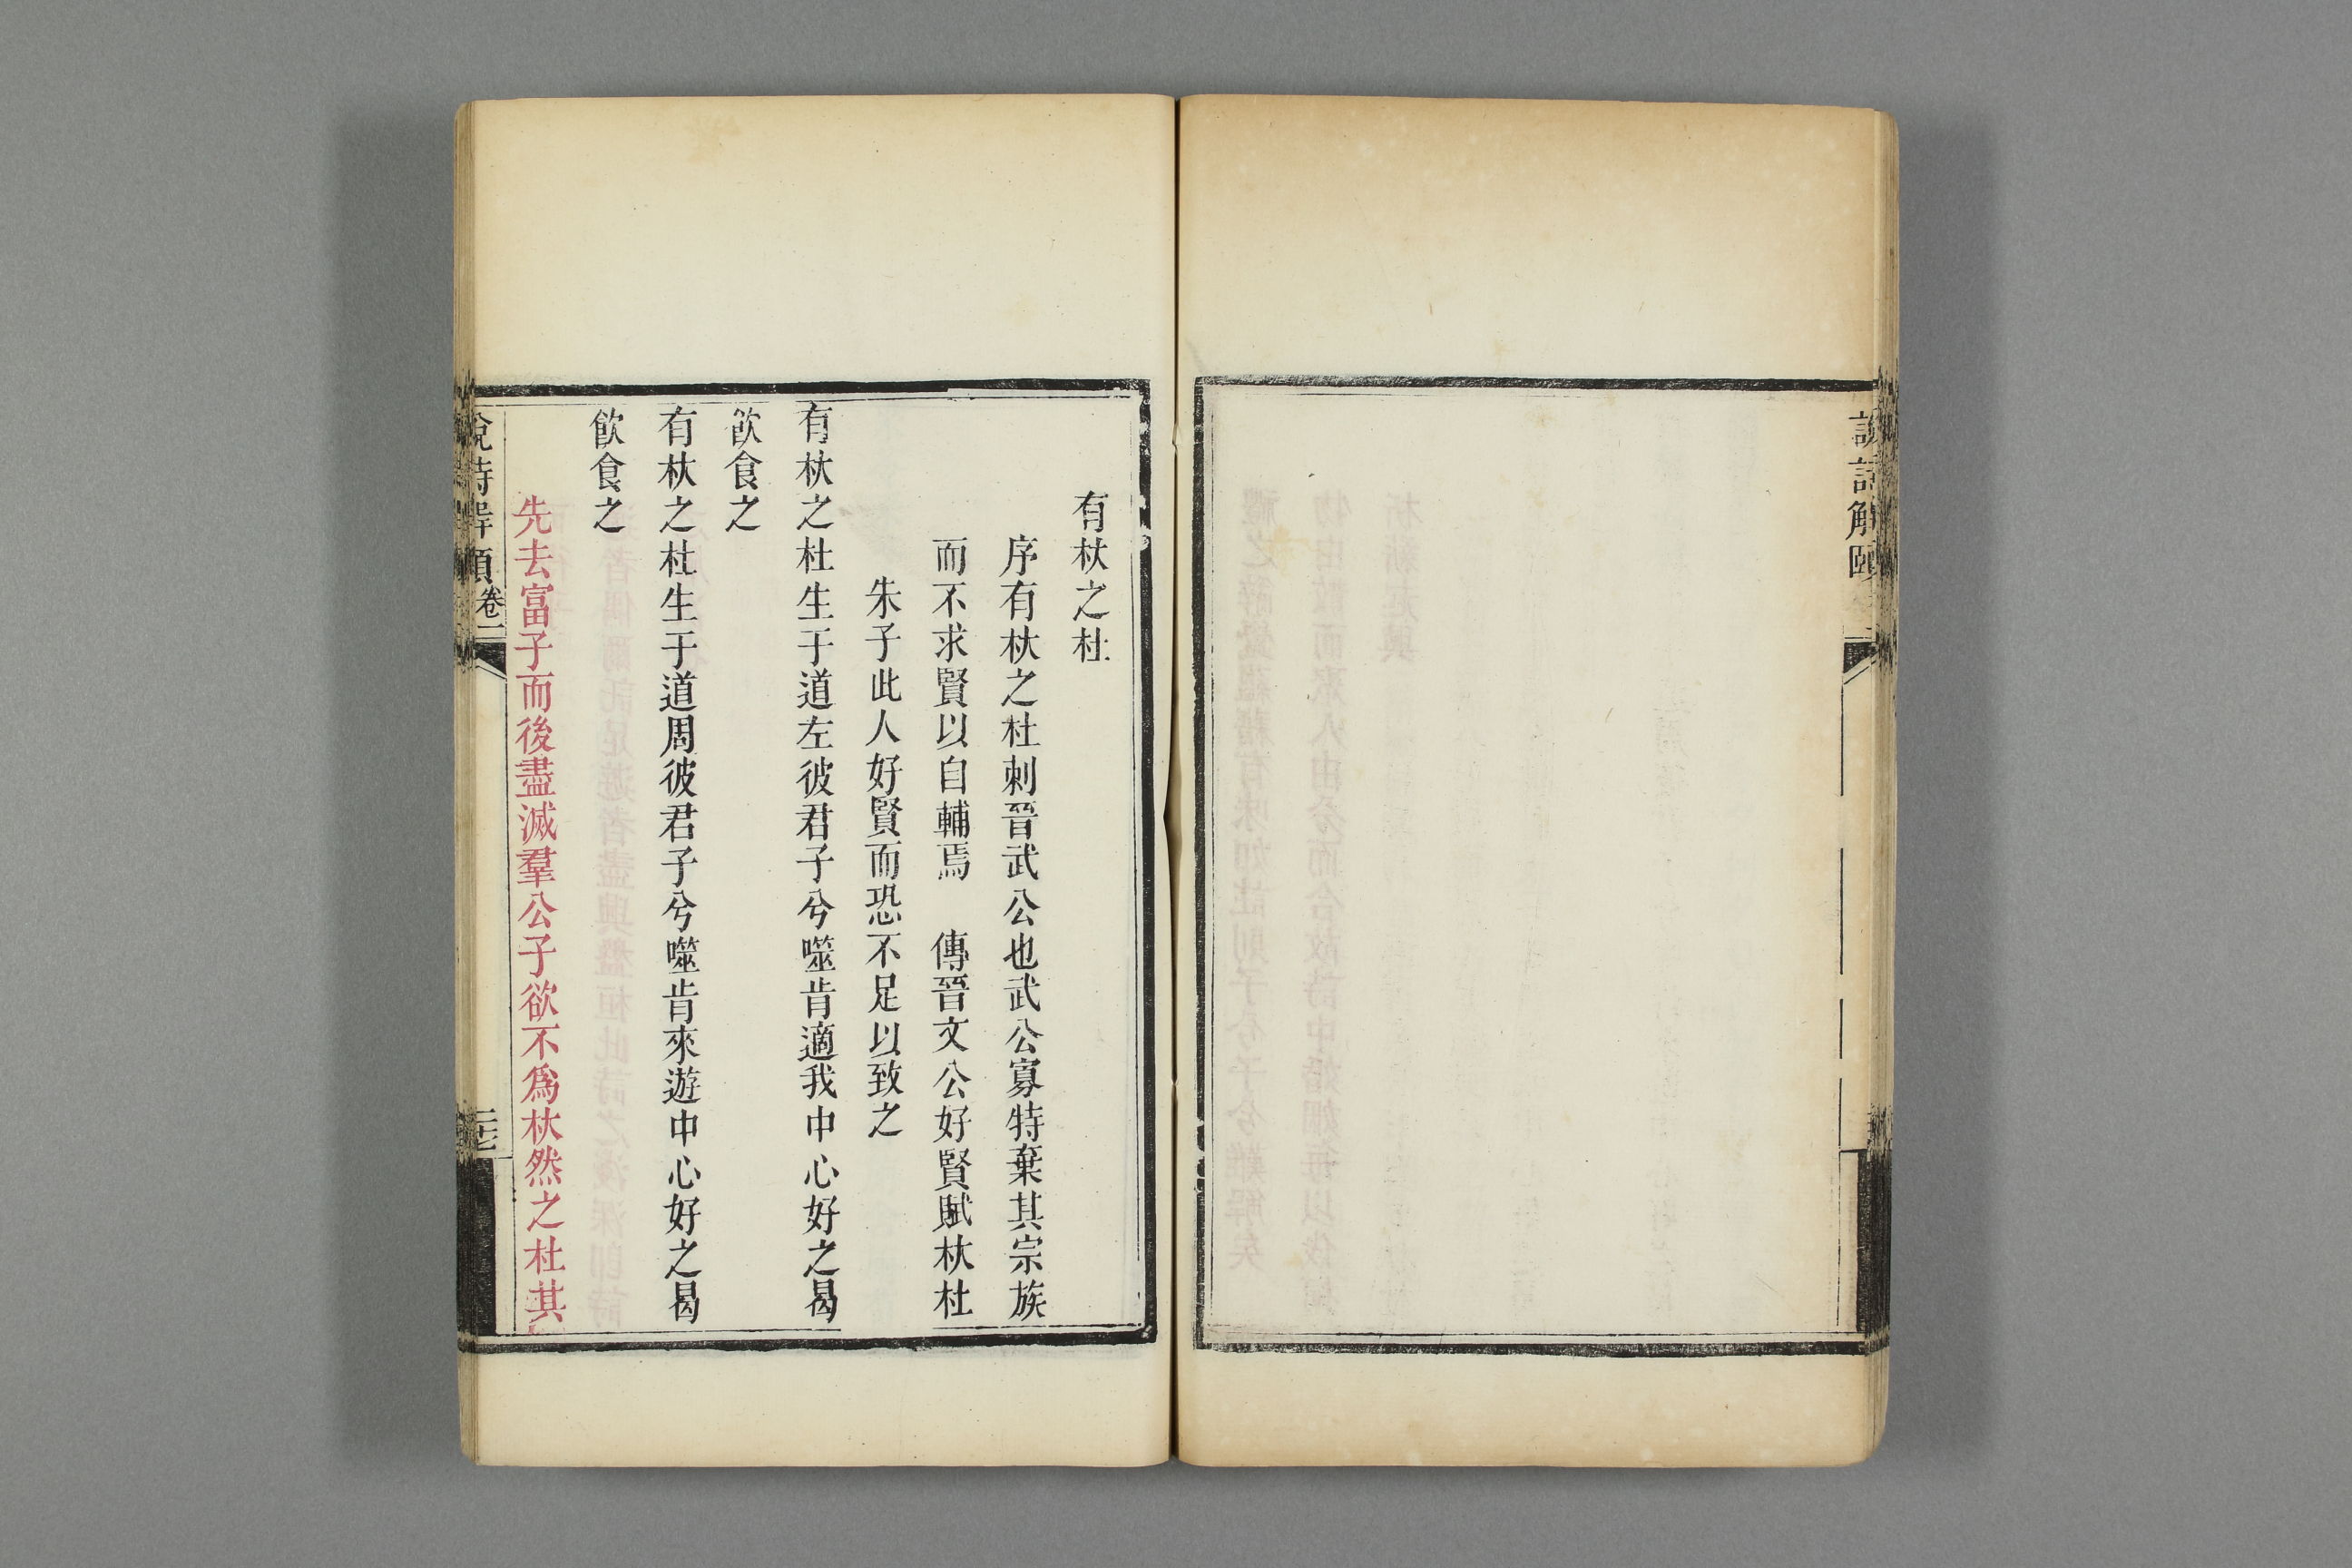 說詩解頤
有杕之杜
序有杕之杜刺晉武公也武公寡特棄其宗族
而不求賢以自輔焉　傳晉文公好賢賦杕杜
朱子此人好賢而恐不足以致之
有杕之杜生于道左彼君子兮噬肯適我中心好之曷
飲食之
有杕之杜生于道周彼君子兮噬肯來遊中心好之曷
飲食之
先去富子而後盡滅羣公子欲不為杕然之杜其
說詩解頤 卷一